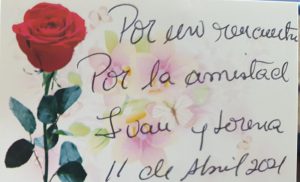 Por un rencuentr
Por la amistad
Ivan y Lorena
11 de Abril 2021